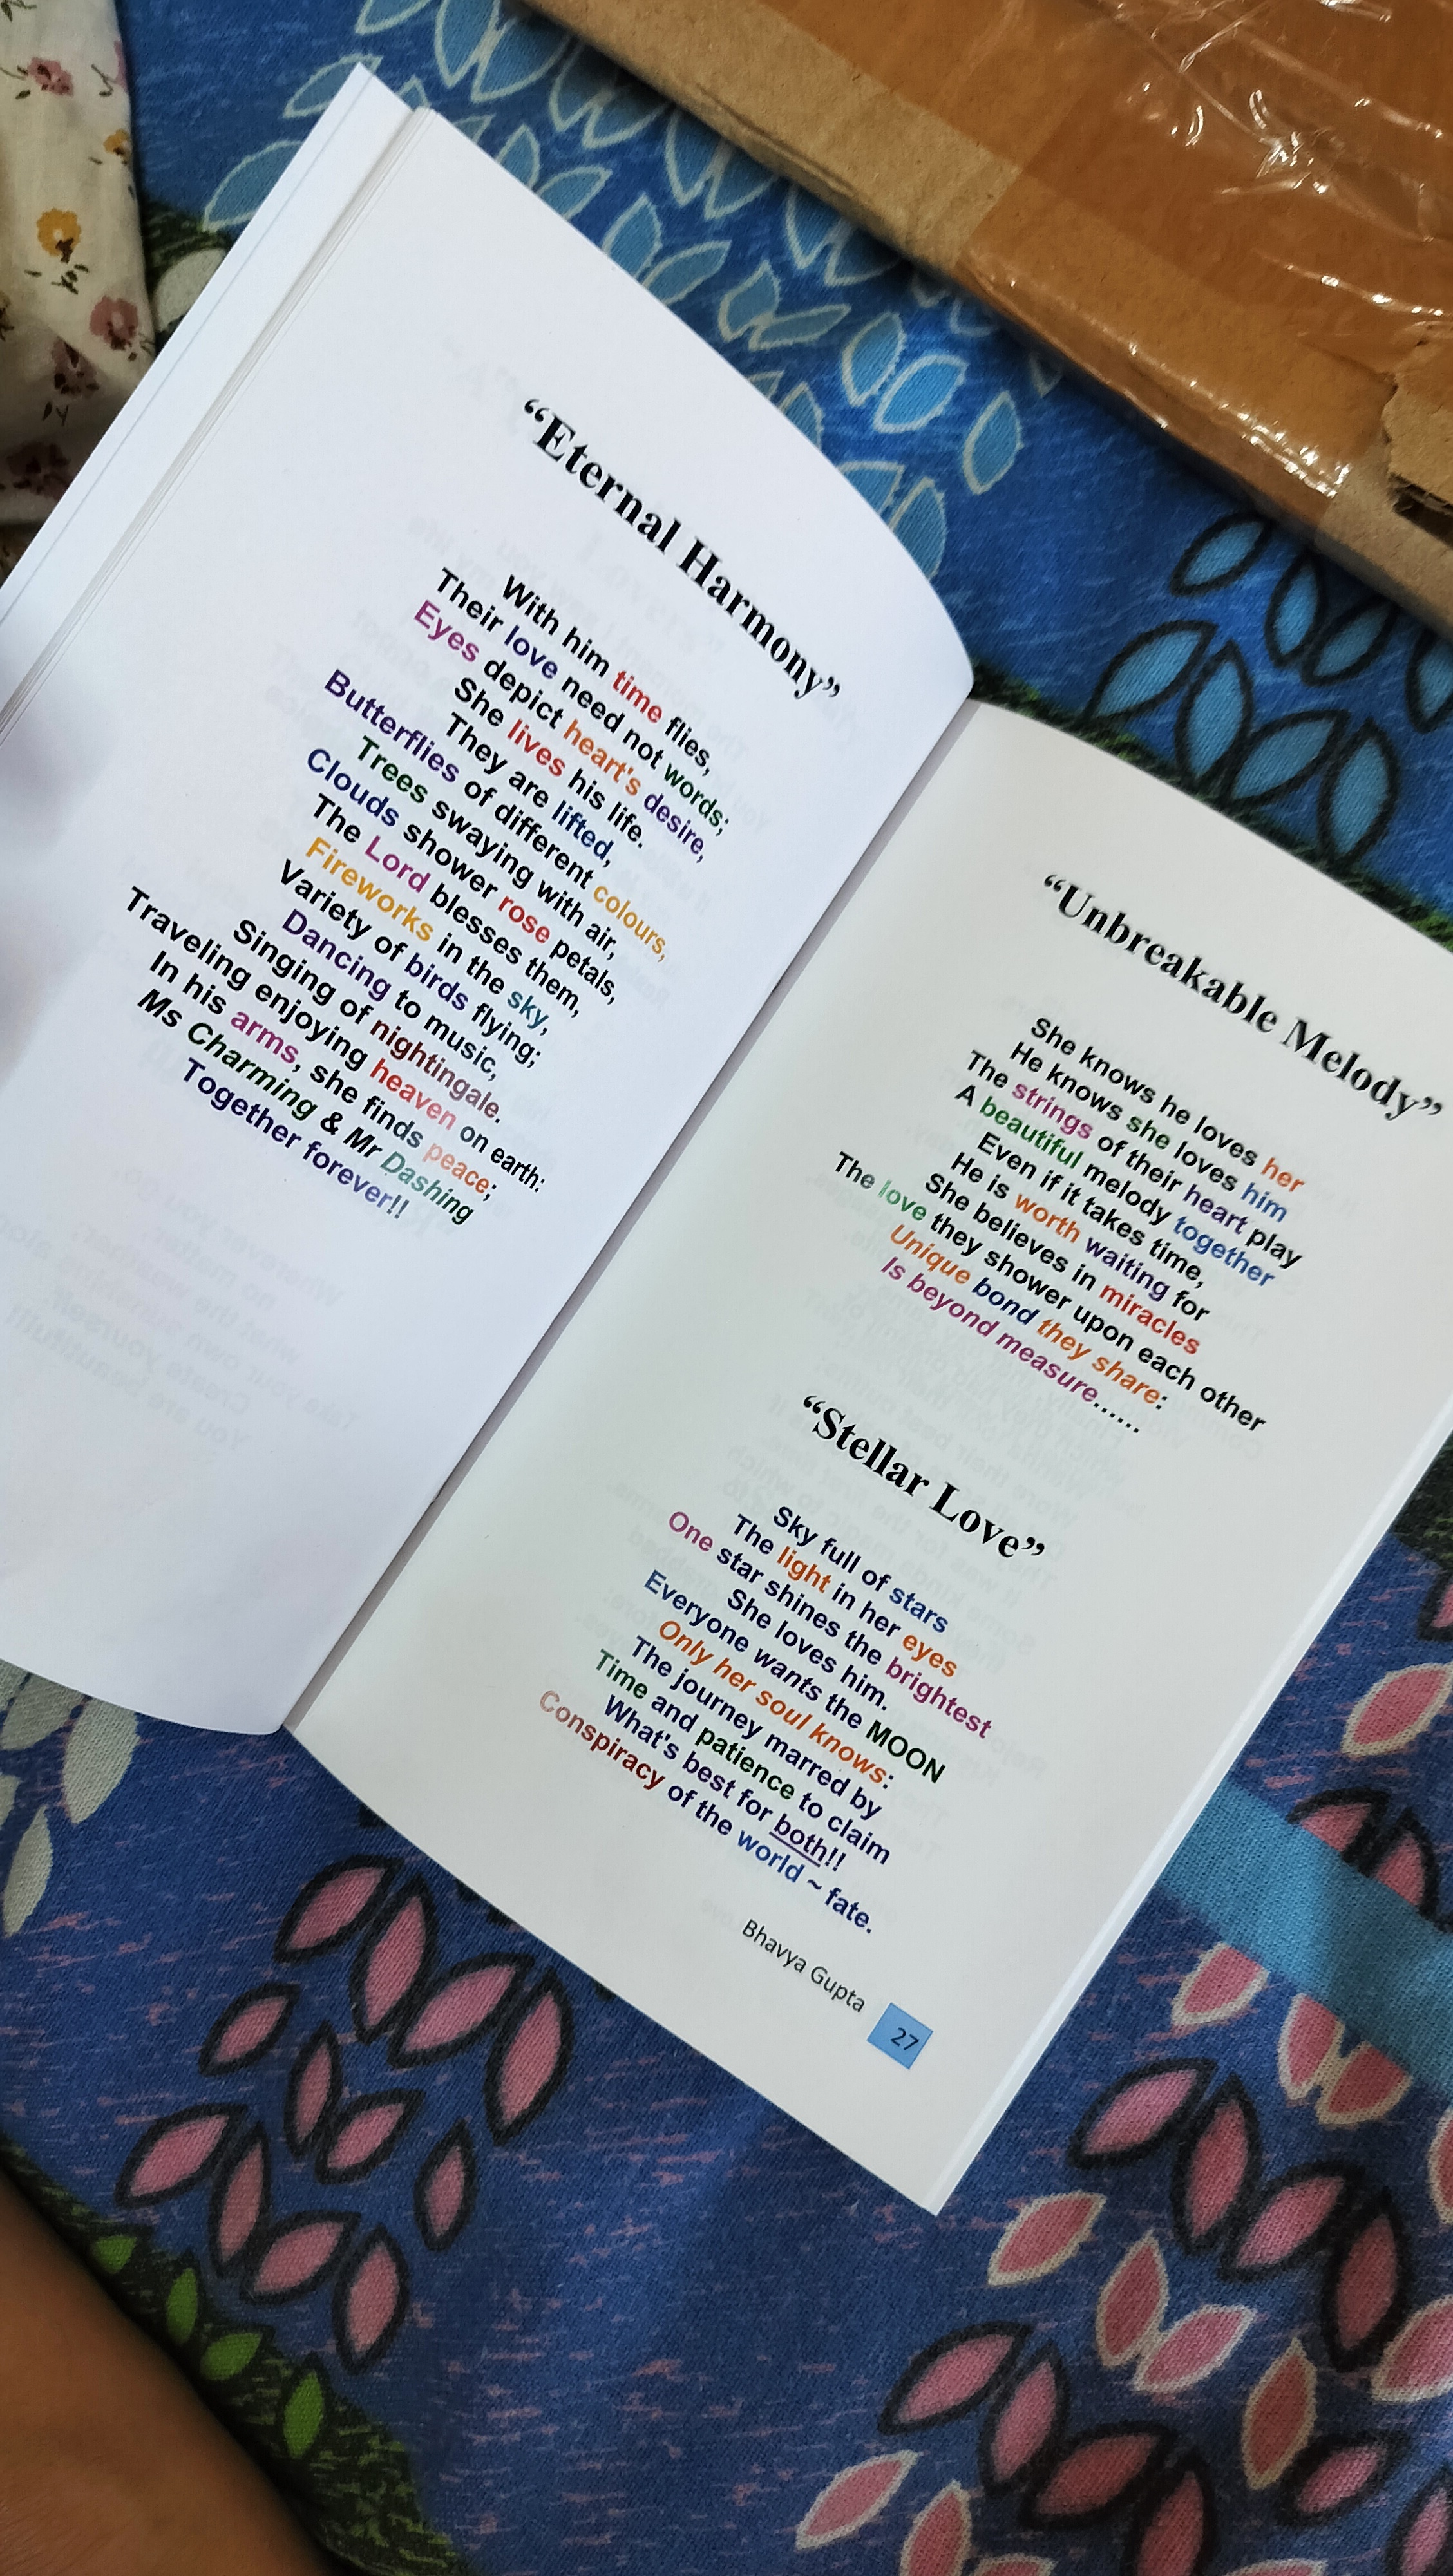 “Eternal Harmony”
With him time flies,
Their love need not words;
Eyes depict heart's desire,
She lives his life.
They are lifted,
Butterflies of different colours,
Trees swaying with air,
Clouds shower rose petals,
The Lord blesses them,
Fireworks in the sky,
Variety of birds flying;
Dancing to music,
Singing of nightingale.
Traveling enjoying heaven on earth:
In his arms, she finds peace;
Ms Charming & Mr Dashing
Together forever!!
“Unbreakable Melody”
She knows he loves her
He knows she loves him
The strings of their heart play
A beautiful melody together
Even if it takes time,
He is worth waiting for
She believes in miracles
The love they shower upon each other
Unique bond they share:
Is beyond measure......
“Stellar Love”
Sky full of stars
The light in her eyes
One star shines the brightest
She loves him.
Everyone wants the MOON
Only her soul knows:
The journey marred by
Time and patience to claim
What's best for both!!
Conspiracy of the world ~ fate.
Bhavya Gupta
27